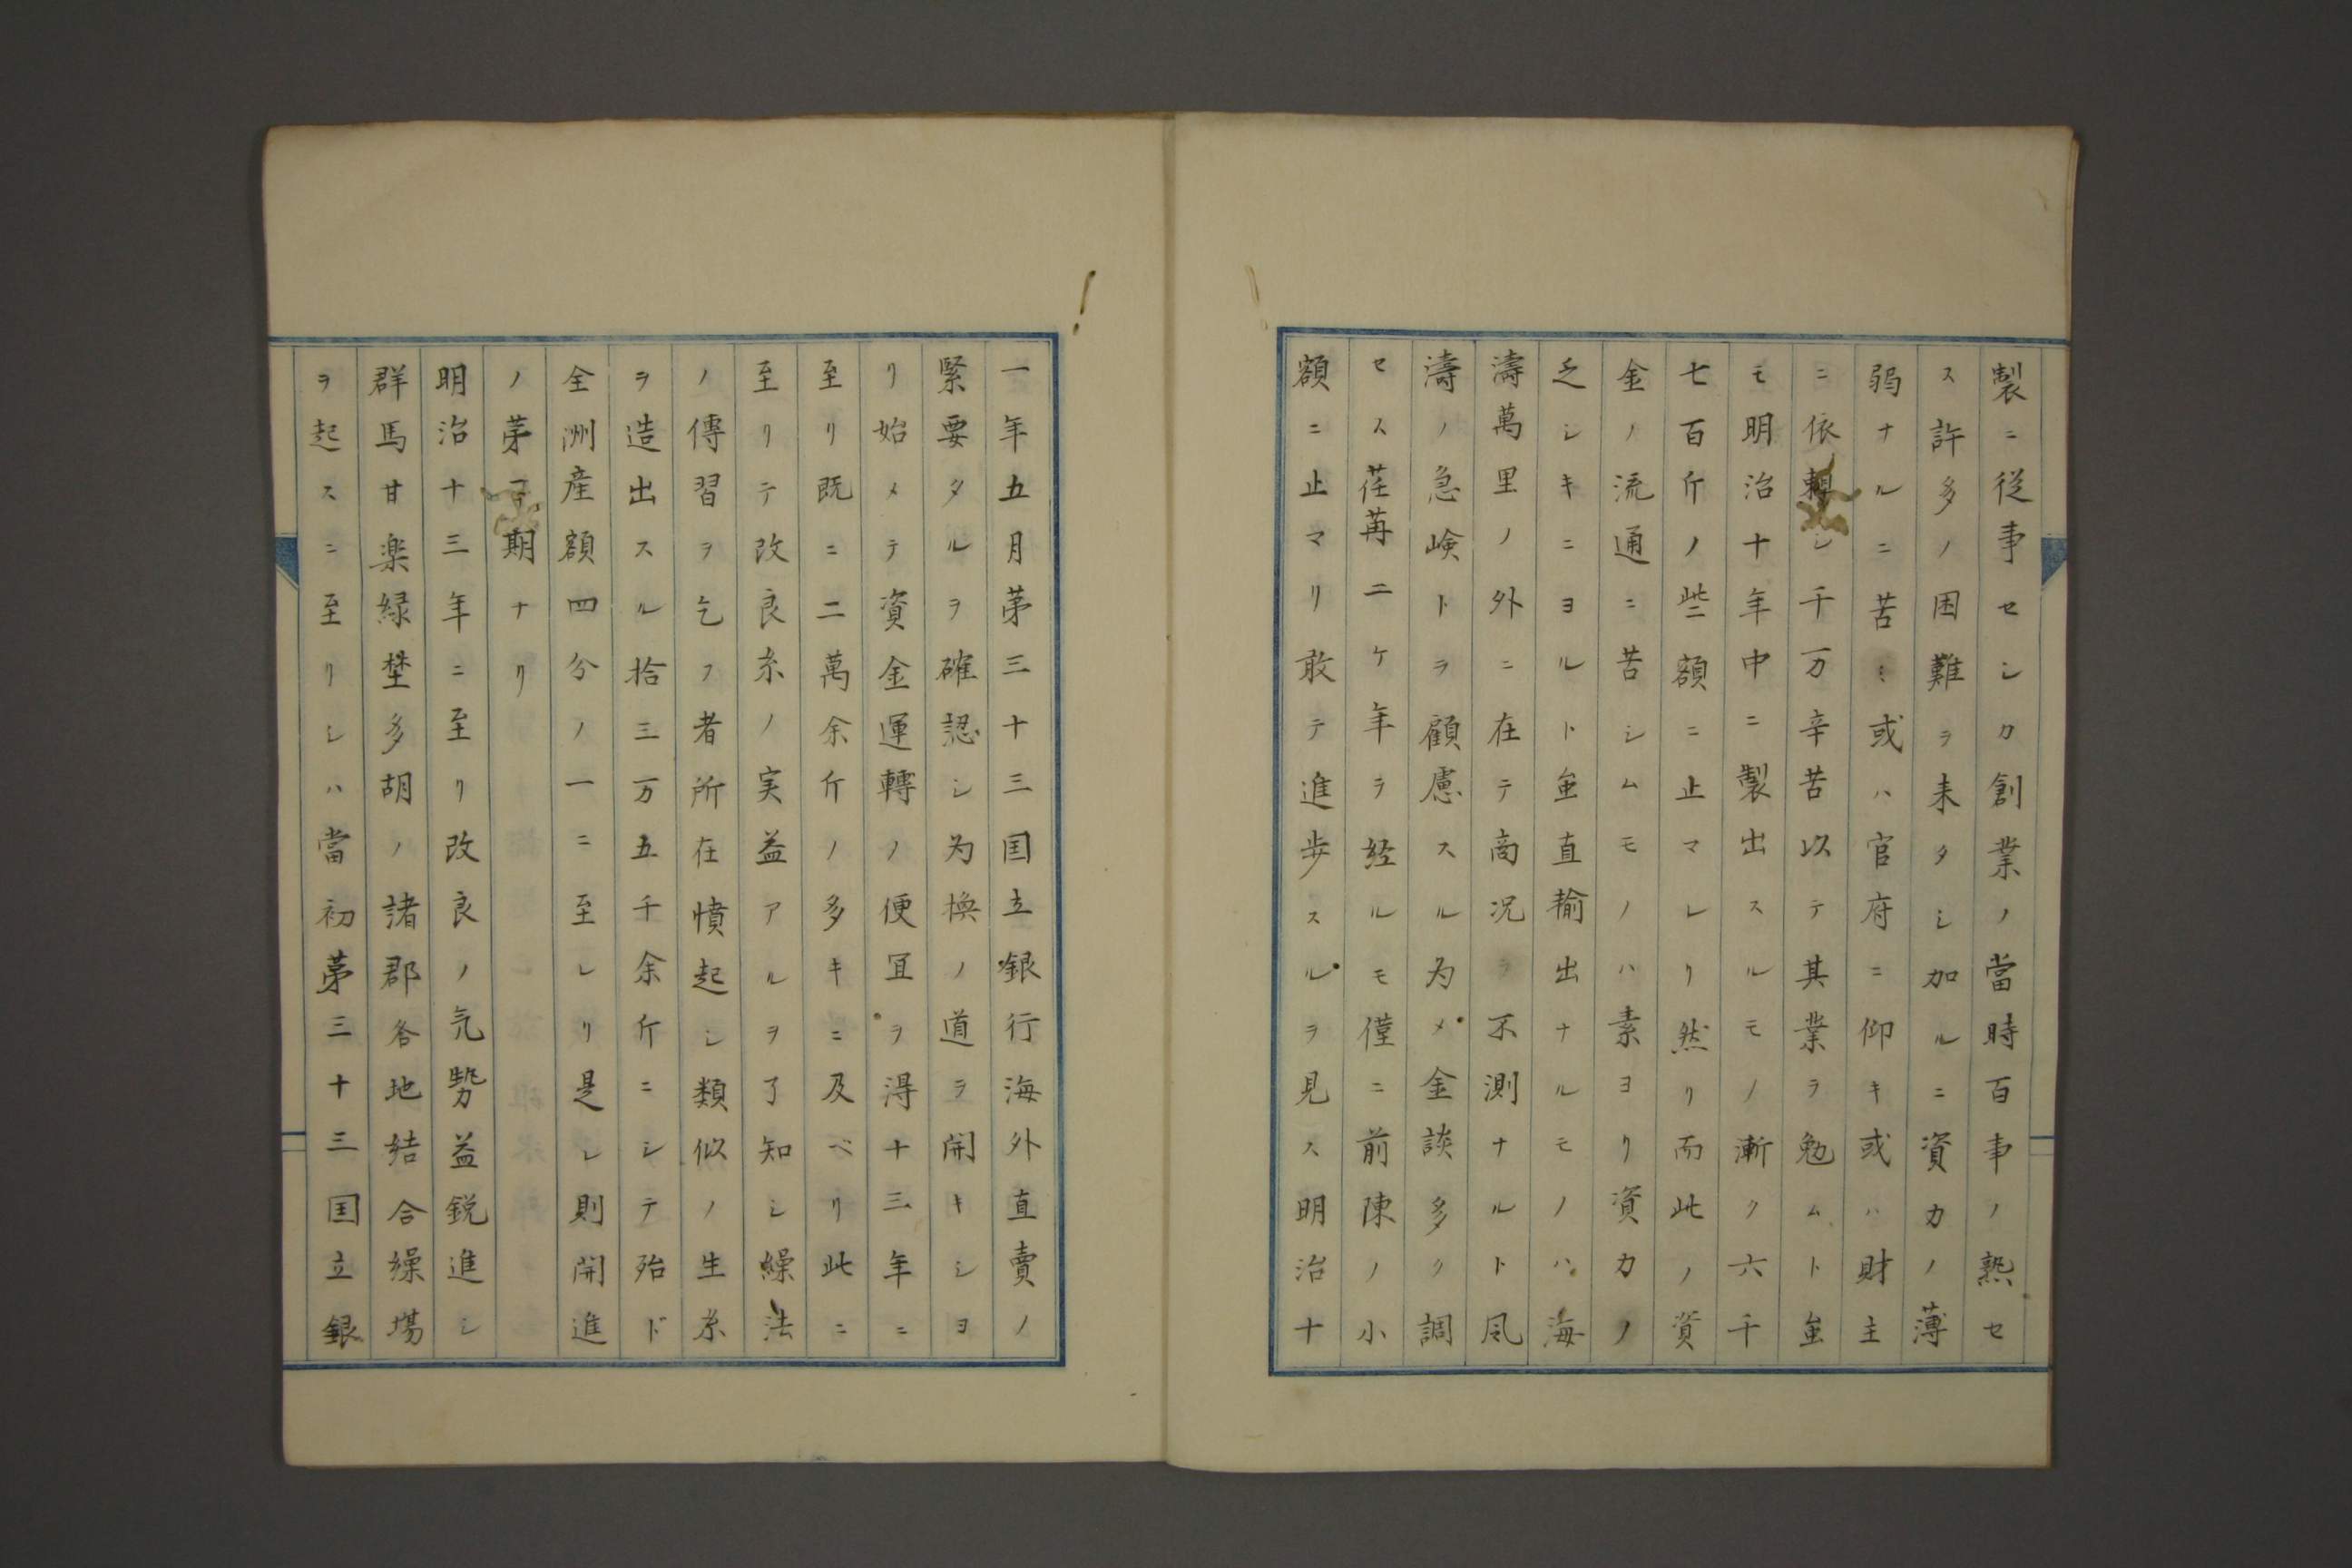 製ニ従事セシカ創業ノ當時百事ノ熟セ
ス許多ノ困難ヲ来タシ加ルニ資力ノ薄
弱ナルニ苦ミ或ハ官府ニ仰キ或ハ財主
ニ依頼シ千万辛苦以テ其業ヲ勉ムト虽
モ明治十年中ニ製出スルモノ漸ク六千
七百斤ノ些額ニ止マレリ然リ而此ノ資
金ノ流通ニ苦シムモノハ素ヨリ資力ノ
乏シキニヨルト虽直輸出ナルモノハ海
濤萬里ノ外ニ在テ商况ヲ不測ナルト風
濤ノ急嶮トヲ顧慮スル為メ金談多ク調
セス荏苒二ケ年ヲ経ルモ僅ニ前陳ノ小
額ニ止マリ敢テ進歩スルヲ見ス明治十
一年五月苐三十三国立銀行海外直賣ノ
緊要タルヲ確認シ為換ノ道ヲ開キシヨ
リ始メテ資金運轉ノ便冝ヲ得十三年ニ
至リ既ニ二萬余斤ノ多キニ及ベリ此ニ
至リテ改良糸ノ実益アルヲ了知シ繰法
ノ傳習ヲ乞フ者所在憤起シ類似ノ生糸
ヲ造出スル拾三万五千余斤ニシテ殆ド
全洲産額四分ノ一ニ至レリ是レ則開進
ノ苐二期ナリ
明治十三年ニ至リ改良ノ気勢益鋭進シ
群馬甘楽緑埜多胡ノ諸郡各地結合繰場
ヲ起スニ至リシハ當初苐三十三国立銀